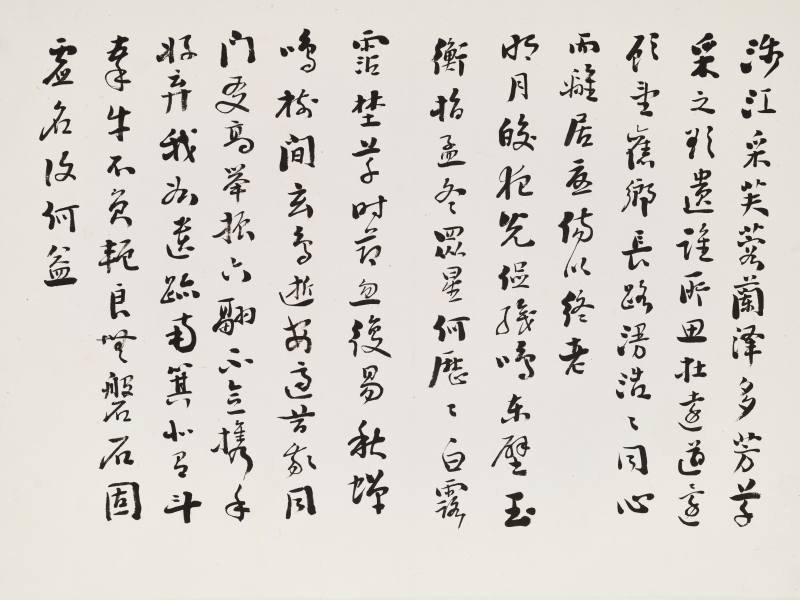 涉江采芙蓉蘭澤多芳草
采之欲遺誰所思在遠道還
顧望舊鄉長路漫浩〻同心
而離居憂傷以終老
明月皎夜光促織鳴東壁玉
衡指孟冬眾星何歷〻白露
霑埜草時節忽復易秋蟬
鳴樹間玄鳥逝安適昔我同
門友高舉振六翮不念攜手
好棄我如遺跡南箕北有斗
牽牛不負軛良無磐石固
虛名復何益